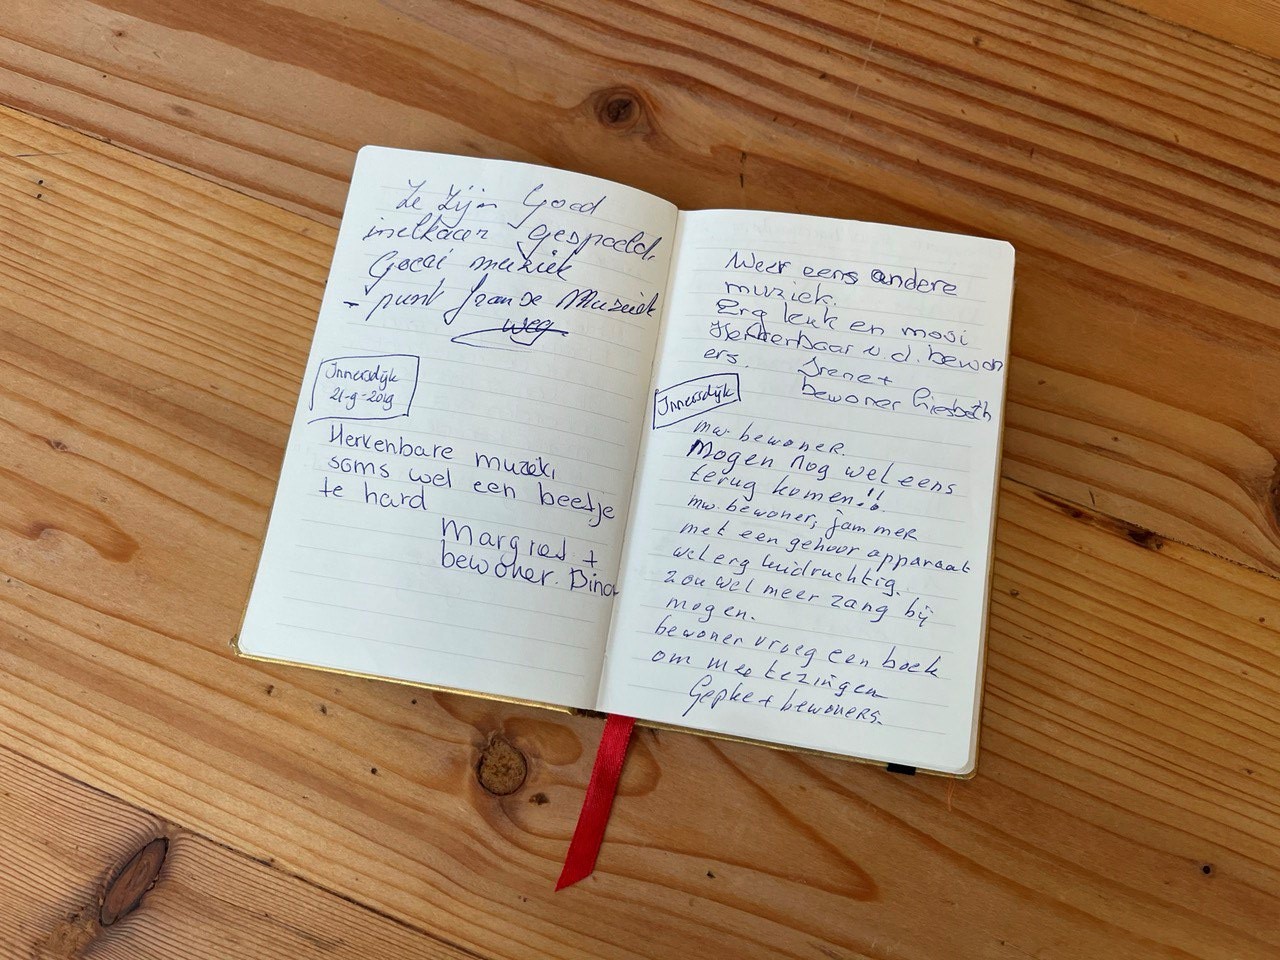 Ze zijn Goed
inelkaar gespeeld.
Goeai muziek
- punt franse Muziek
weg
Innersdijk
21-9-2019
Herkenbare muziek,
soms wel een beetje
te hard
Margriet +
bewoner. Dina
Weer eens andere
muziek.
Erg leuk en mooi
Herkenbaar v.d. bewon
ers.
Irene +
bewoner Liesbeth
Innersdijk
mw. bewoner.
Mogen nog wel eens
terug komen!!
mw. bewoner, jammer
met een gehoor apparaat
wel erg luidruchtig.
zou wel meer zang bij
mogen.
bewoner vroeg een boek
om mee te zingen
Gepke + bewoners.